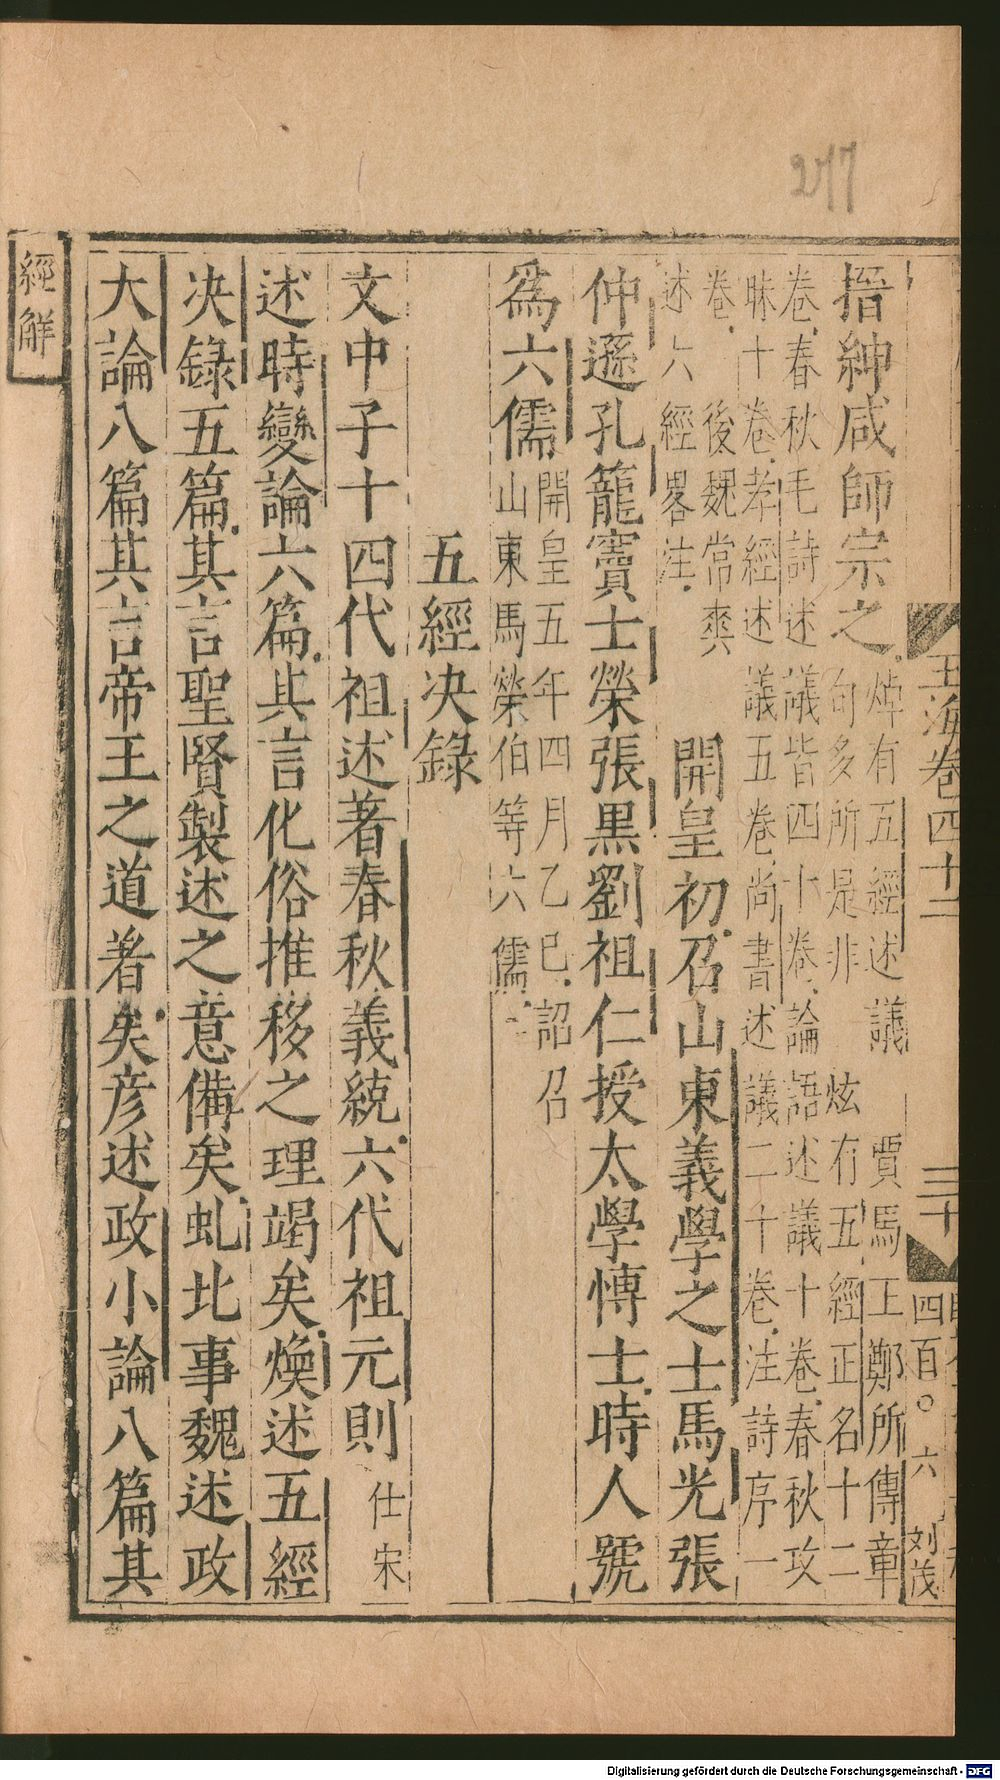 277
經解
玉海卷四十二
三十
四百〇六
刘茂
搢紳咸師宗之焯有五經述議 賈馬王鄭所傳章
句多所是非 炫有五經正名十二
卷春秋毛詩述議皆四十卷論語述議十卷春秋攻
昧十卷孝經述議五卷尚書述議二十卷注詩序一
卷 後魏常爽
述六經畧注 開皇初召山東義學之士馬光張
仲遜孔籠竇士榮張黒劉祖仁授太學博士時人號
為六儒開皇五年四月乙巳詔召
山東馬榮伯等六儒
五經决錄
文中子十四代祖述著春秋義統六代祖元則仕宋
述時變論六篇其言化俗推移之理竭矣煥述五經
决錄五篇其言聖賢製述之意備矣虬比事魏述政
大論八篇其言帝王之道著矣彦述政小論八篇其
Digitalisierung gefördert durch die Deutsche Forschungsgemeinschaft - DFG